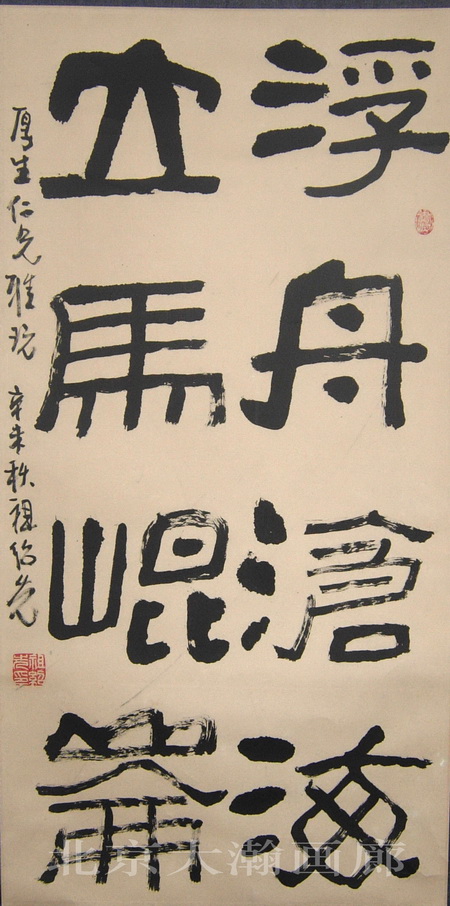 浮舟滄海
立馬崐崙
厚生仁兄雅玩 辛未秋祖紹先
北京大瀚画廊